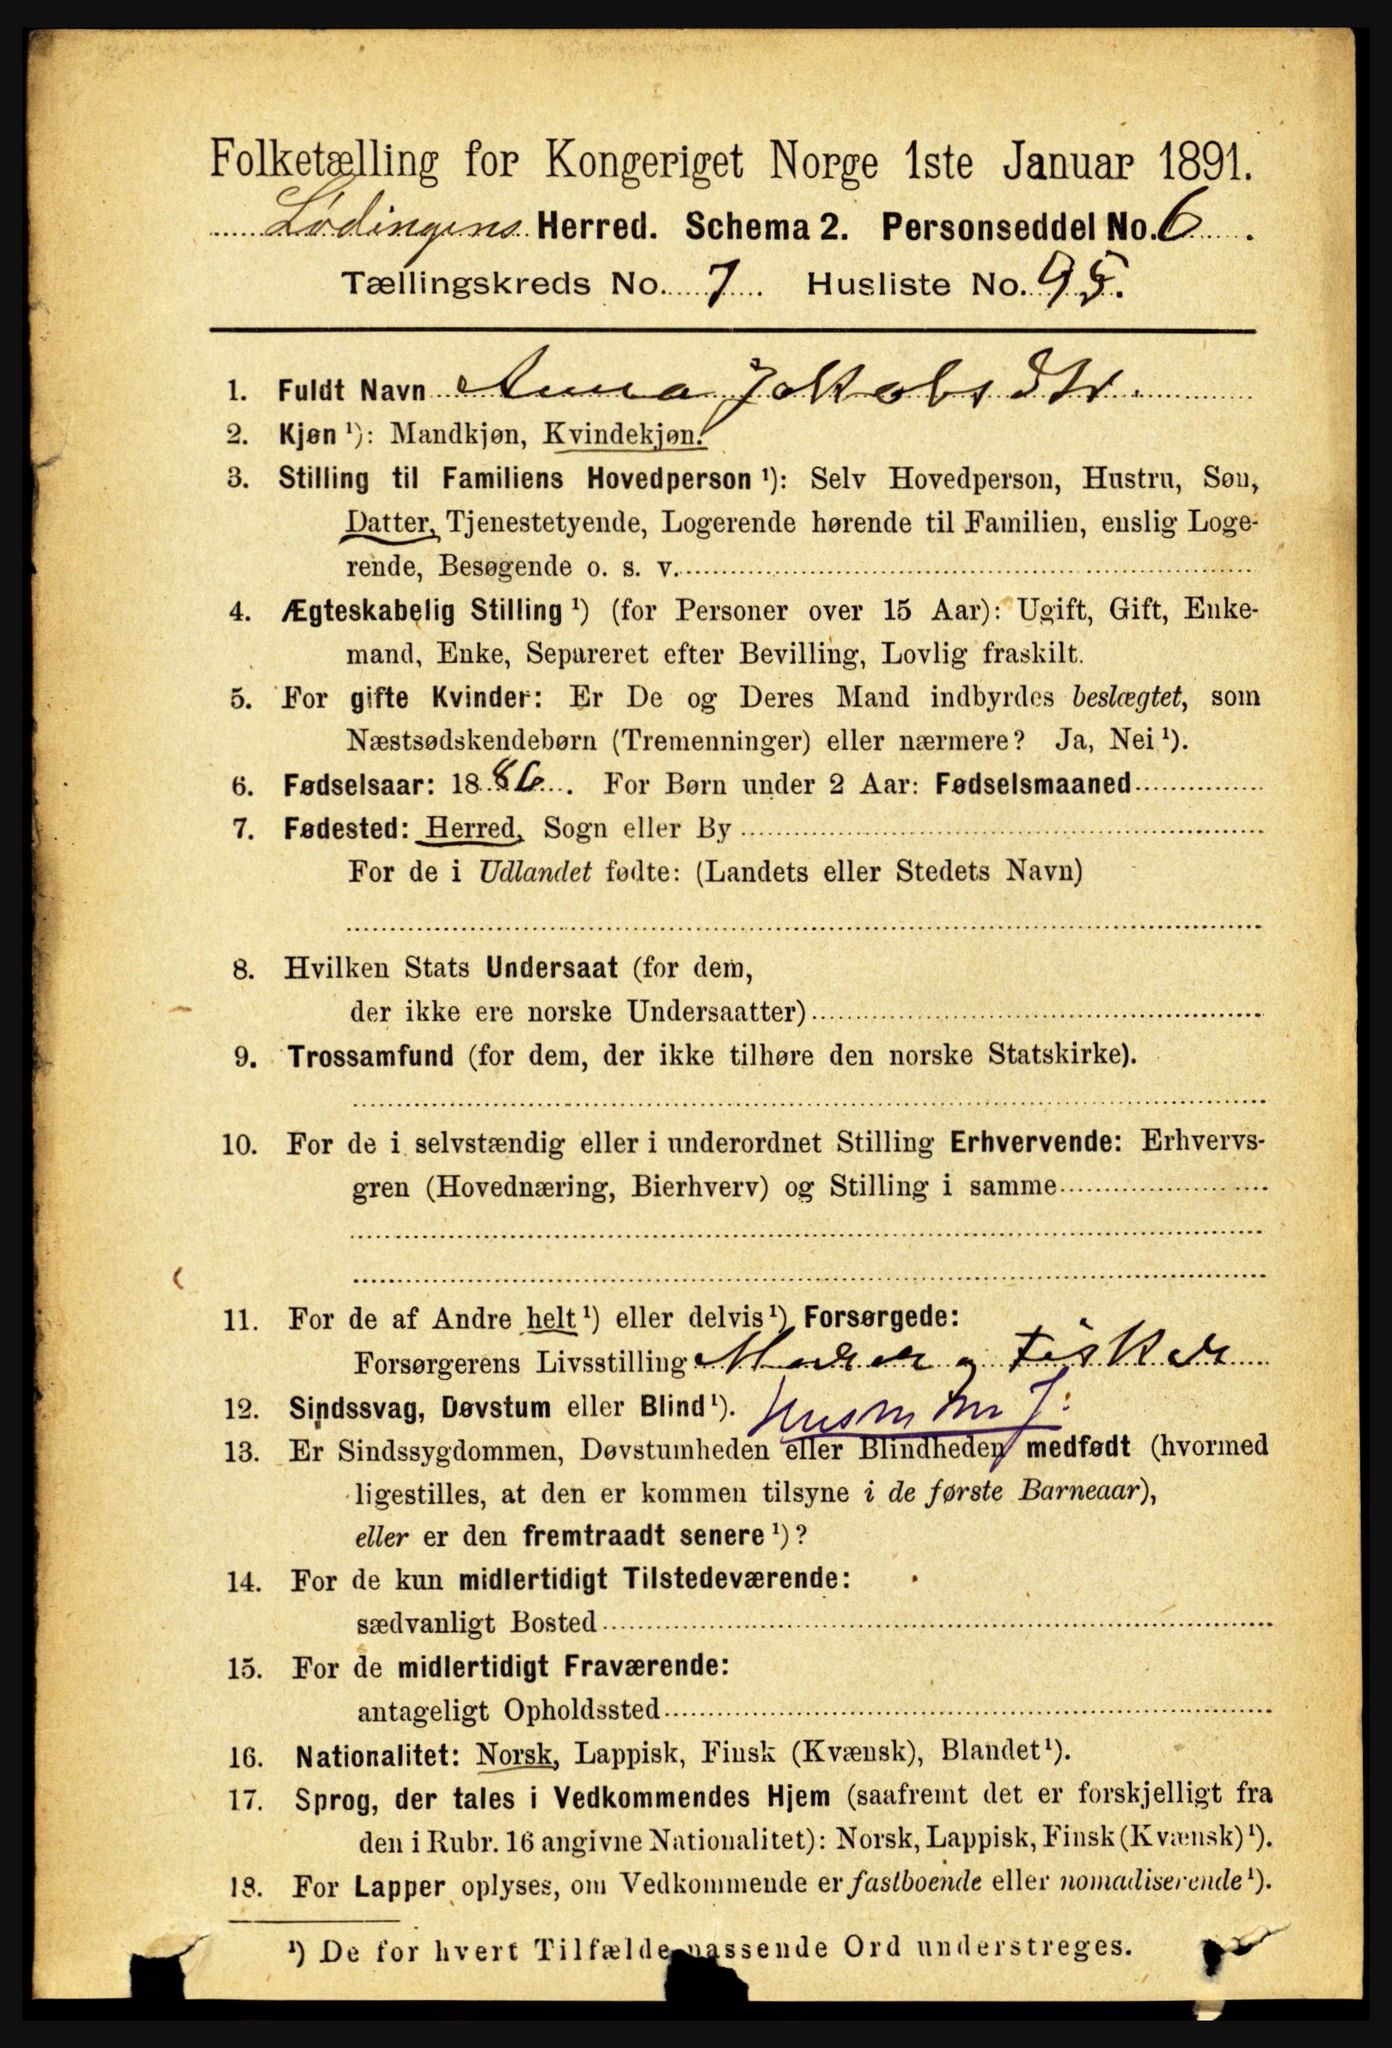 Folketælling for Kongeriget Norge 1ste Januar 1891.
Lødingens Herred. Schema 2. Personseddel No. 6.
Tællingskreds No. 7. Husliste No. 95.
1. Fuldt Navn Anna Jakobsdtr.
2. Kjøn ¹): Mandkjøn, Kvindekjøn.
3. Stilling til Familiens Hovedperson ¹): Selv Hovedperson, Hustru, Søn,
Datter, Tjenestetyende, Logerende hørende til Familien, enslig Loge-
rende, Besøgende o. s. v.
4. Ægteskabelig Stilling ¹) (for Personer over 15 Aar): Ugift, Gift, Enke-
mand, Enke, Separeret efter Bevilling, Lovlig fraskilt.
5. For gifte Kvinder: Er De og Deres Mand indbyrdes beslægtet, som
Næstsødskendebørn (Tremenninger) eller nærmere? Ja, Nei ¹).
6. Fødselsaar: 1886. For Børn under 2 Aar: Fødselsmaaned
7. Fødested: Herred, Sogn eller By
For de i Udlandet fødte: (Landets eller Stedets Navn)
8. Hvilken Stats Undersaat (for dem,
der ikke ere norske Undersaatter)
9. Trossamfund (for dem, der ikke tilhøre den norske Statskirke).
10. For de i selvstændig eller i underordnet Stilling Erhvervende: Erhvervs-
gren (Hovednæring, Bierhverv) og Stilling i samme
11. For de af Andre helt ¹) eller delvis ¹) Forsørgede:
Forsørgerens Livsstilling og Fisker
12. Sindssvag, Døvstum eller Blind ¹).
13. Er Sindssygdommen, Døvstumheden eller Blindheden medfødt (hvormed
ligestilles, at den er kommen tilsyne i de første Barneaar),
eller er den fremtraadt senere ¹)?
14. For de kun midlertidigt Tilstedeværende:
sædvanligt Bosted
15. For de midlertidigt Fraværende:
antageligt Opholdssted
16. Nationalitet: Norsk, Lappisk, Finsk (Kvænsk), Blandet ¹).
17. Sprog, der tales i Vedkommendes Hjem (saafremt det er forskjelligt fra
den i Rubr. 16 angivne Nationalitet): Norsk, Lappisk, Finsk (Kvænsk) ¹).
18. For Lapper oplyses, om Vedkommende er fastboende eller nomadiserende ¹).
¹) De for hvert Tilfælde passende Ord understreges.